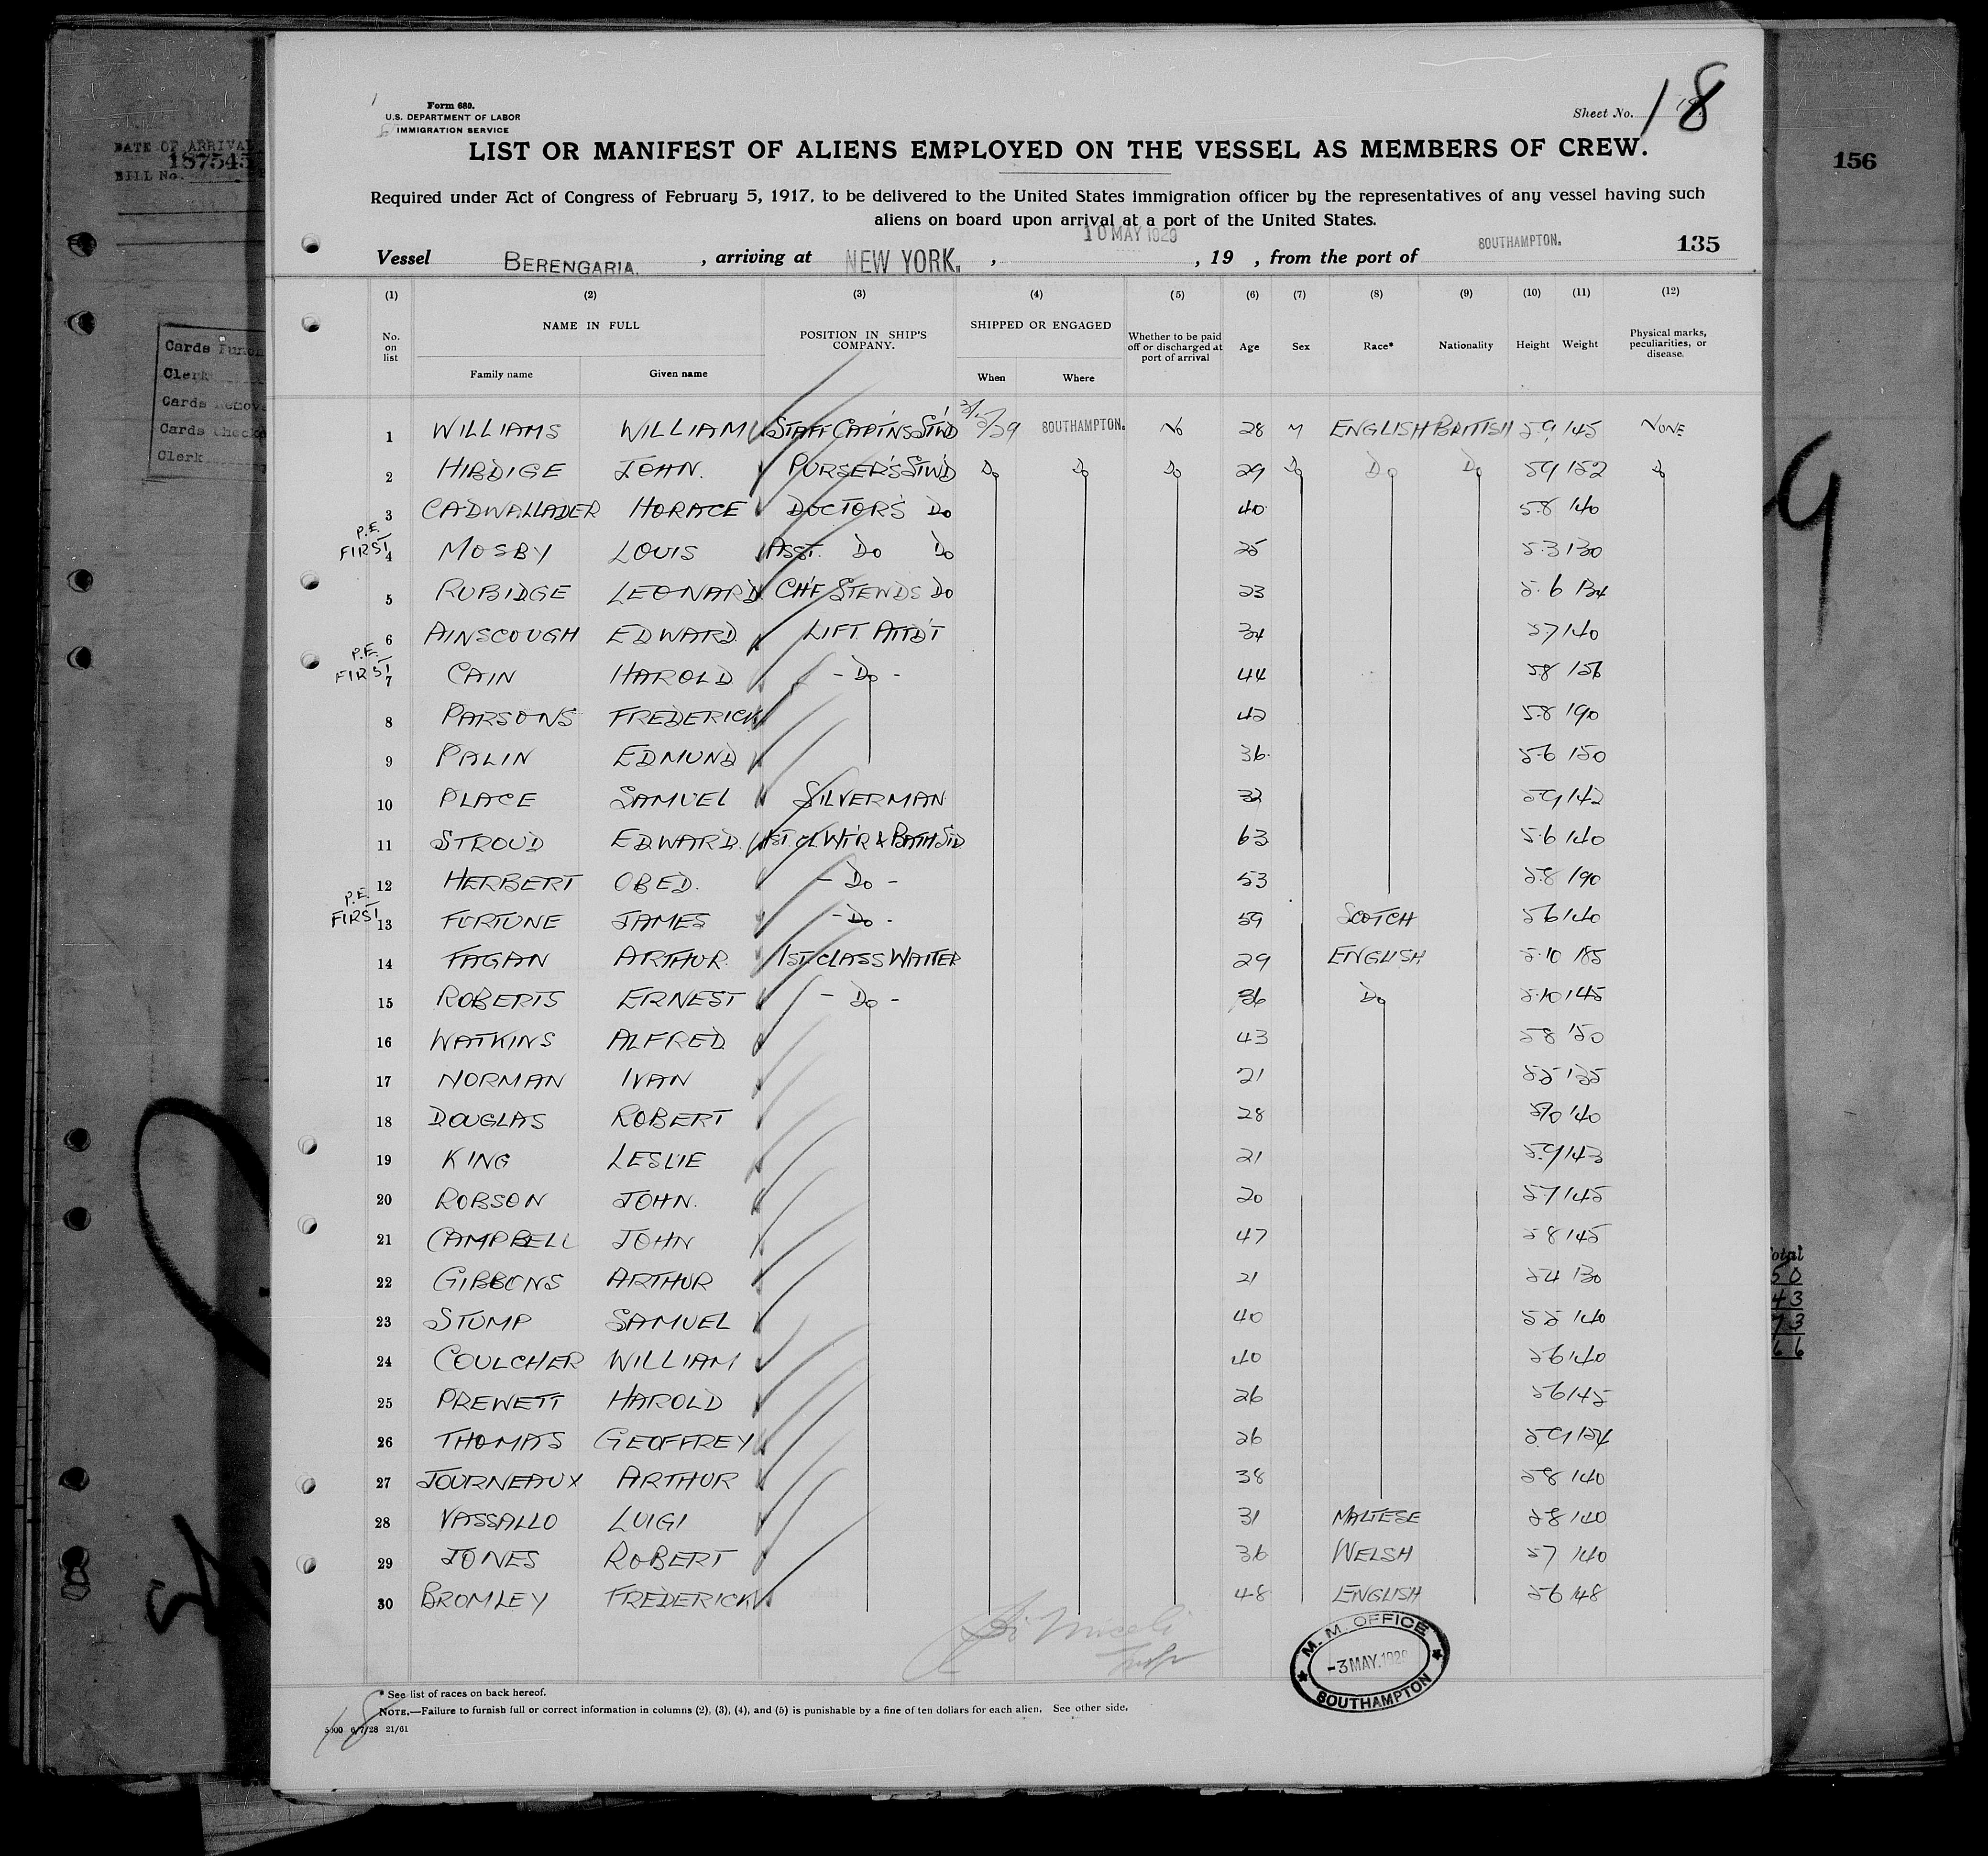 Form 680.
U.S. DEPARTMENT OF LABOR
IMMIGRATION SERVICE
Sheet No. 18
LIST OR MANIFEST OF ALIENS EMPLOYED ON THE VESSEL AS MEMBERS OF CREW.
Required under Act of Congress of February 5, 1917, to be delivered to the United States immigration officer by the representatives of any vessel having such
aliens on board upon arrival at a port of the United States.
10 MAY 1929
Vessel BERENGARIA. , arriving at NEW YORK. , , 19 , from the port of SOUTHAMPTON. 135
(1) (2) (3) (4) (5) (6) (7) (8) (9) (10) (11) (12)
No. on list NAME IN FULL Family name Given name POSITION IN SHIP'S COMPANY. SHIPPED OR ENGAGED When Where Whether to be paid off or discharged at port of arrival Age Sex Race* Nationality Height Weight Physical marks, peculiarities, or disease.
1 WILLIAMS WILLIAM STAFF CAPT'NS ST'WD 3/5/29 SOUTHAMPTON. NO 28 M ENGLISH BRITISH 5.9 145 NONE
2 HIBDIGE JOHN. PURSER'S STW'D Do Do Do 29 Do Do Do 59 152 Do
3 CADWALLADER HORACE DOCTOR'S Do 40 5.8 140
P.E. FIRST
4 MOSBY LOUIS ASST. Do Do 25 5.3 130
5 RUBIDGE LEONARD CH'F STEWDS Do 23 5.6 134
6 AINSCOUGH EDWARD. LIFT. ATTD'T 34 57 140
P.E. FIRST
7 CAIN HAROLD - Do - 44 58 156
8 PARSONS FREDERICK 42 5.8 190
9 PALIN EDMUND 36. 5.6 150
10 PLACE SAMUEL SILVERMAN 32 59 142
11 STROUD EDWARD. 1ST CL WT'R & BATH ST'D 63 5.6 140
12 HERBERT OBED. - Do - 53 5.8 190
P.E. FIRST
13 FORTUNE JAMES - Do - 59 SCOTCH 56 140
14 FAGAN ARTHUR. 1ST CLASS WAITER 29 ENGLISH 5.10 185
15 ROBERTS ERNEST - Do - 36 Do 5.10 145
16 WATKINS ALFRED 43 58 150
17 NORMAN IVAN 21 55 135
18 DOUGLAS ROBERT 28 140
19 KING LESLIE 21 5.9 143
20 ROBSON JOHN. 20 57 145
21 CAMPBELL JOHN 47 58 145
22 GIBBONS ARTHUR 21 54 130
23 STUMP SAMUEL 40 55 140
24 COULCHER WILLIAM 40 56 140
25 PREWETT HAROLD 26 56 145
26 THOMAS GEOFFREY 26 5.9 154
27 JOURNEAUX ARTHUR 38 58 140
28 VASSALLO LUIGI 31 MALTESE 58 140
29 JONES ROBERT 36 WELSH 57 140
30 BROMLEY FREDERICK 48 ENGLISH 56 148
M. M. OFFICE
-3 MAY. 1929
SOUTHAMPTON
* See list of races on back hereof.
NOTE.—Failure to furnish full or correct information in columns (2), (3), (4), and (5) is punishable by a fine of ten dollars for each alien. See other side.
5000 6/7/28 21/61
18
DATE OF ARRIVAL
187545
BILL No.
Cards Punch
Clerk
Cards Remov
Cards Checke
Clerk
156
9
otal
50
43
73
66